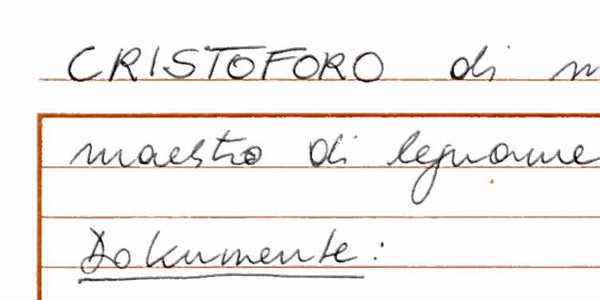 CRISTOFORO di
maestro di legname
Dokumente: